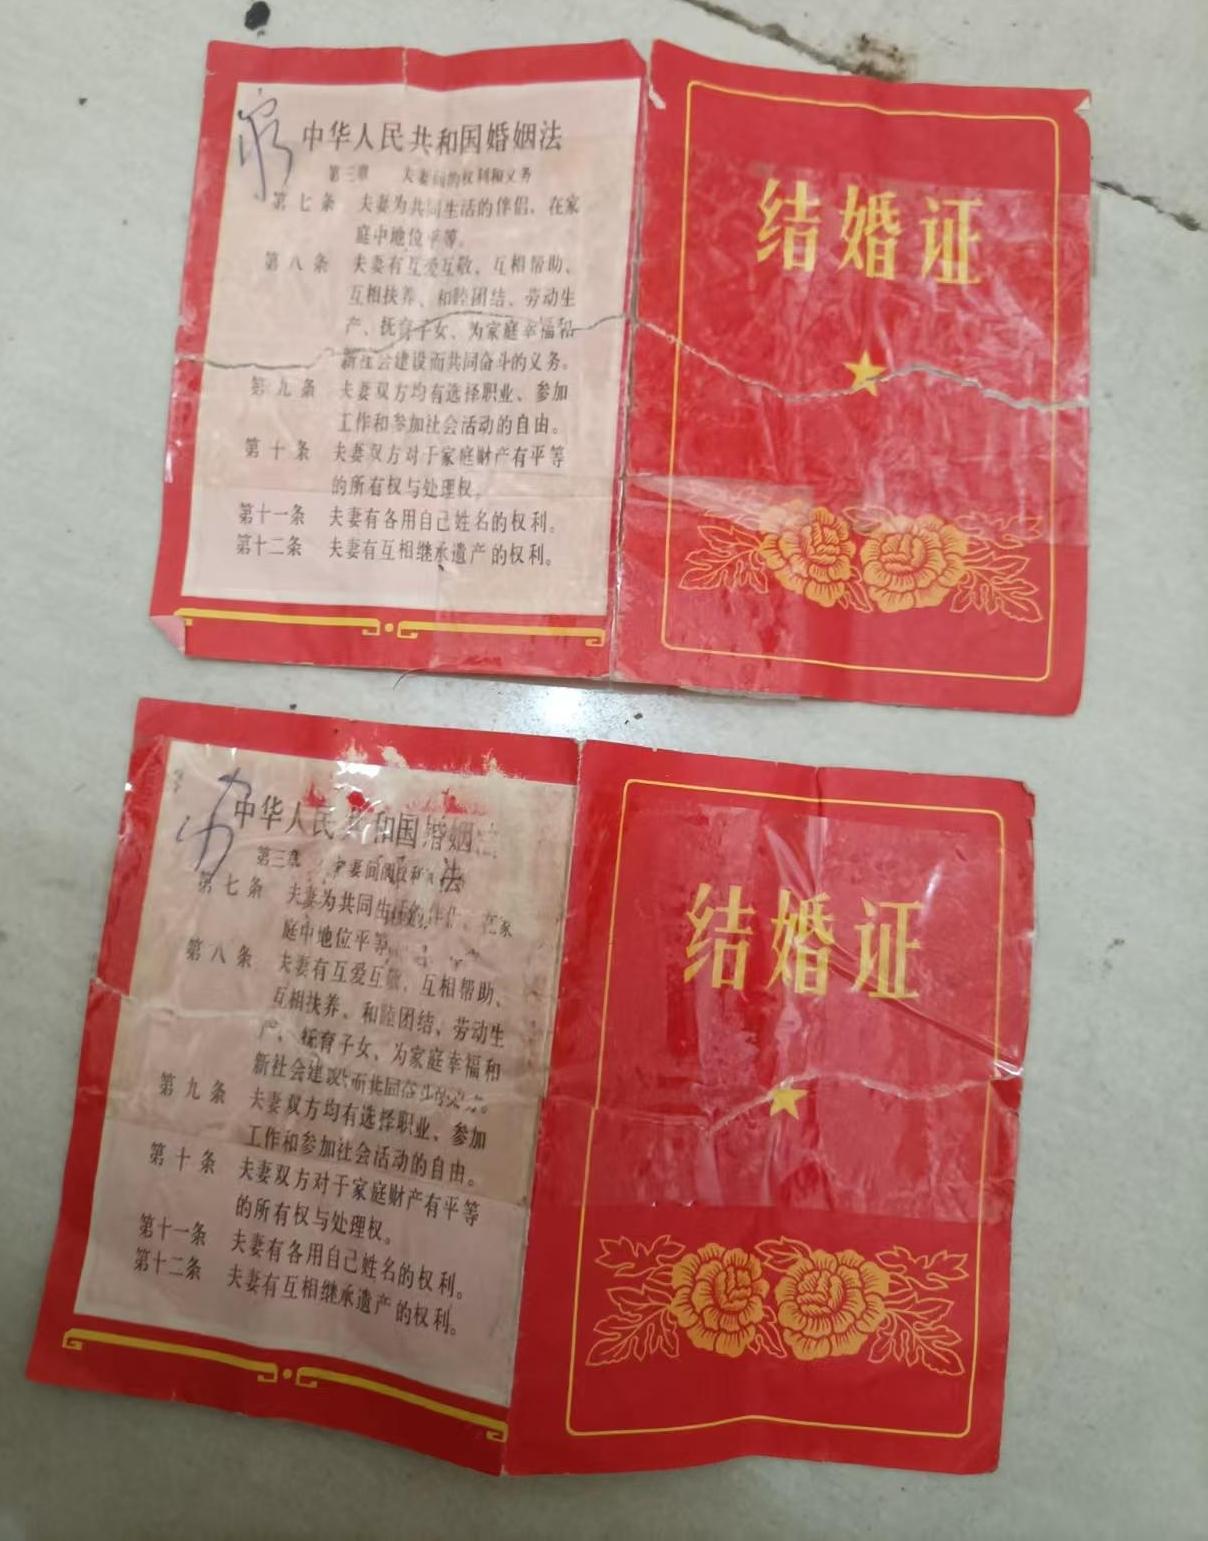 中华人民共和国婚姻法
第三章 夫妻间的权利和义务
第七条 夫妻为共同生活的伴侣、在家
庭中地位平等。
第八条 夫妻有互爱互敬、互相帮助、
互相扶养、和睦团结、劳动生
产、抚育子女、为家庭幸福和
新社会建设而共同奋斗的义务。
第九条 夫妻双方均有选择职业、参加
工作和参加社会活动的自由。
第十条 夫妻双方对于家庭财产有平等
的所有权与处理权。
第十一条 夫妻有各用自己姓名的权利。
第十二条 夫妻有互相继承遗产的权利。
结婚证
中华人民共和国婚姻
第三章 妻间
法
第七条 夫妻为共同生 家
庭中地位平等
第八条 夫妻有互爱互敬、互相帮助、
互相扶养、和睦团结、劳动生
产、抚育子女、为家庭幸福和
新社会建设而共同奋斗的义务。
第九条 夫妻双方均有选择职业、参加
工作和参加社会活动的自由。
第十条 夫妻双方对于家庭财产有平等
的所有权与处理权。
第十一条 夫妻有各用自己姓名的权利。
第十二条 夫妻有互相继承遗产的权利。
结婚证